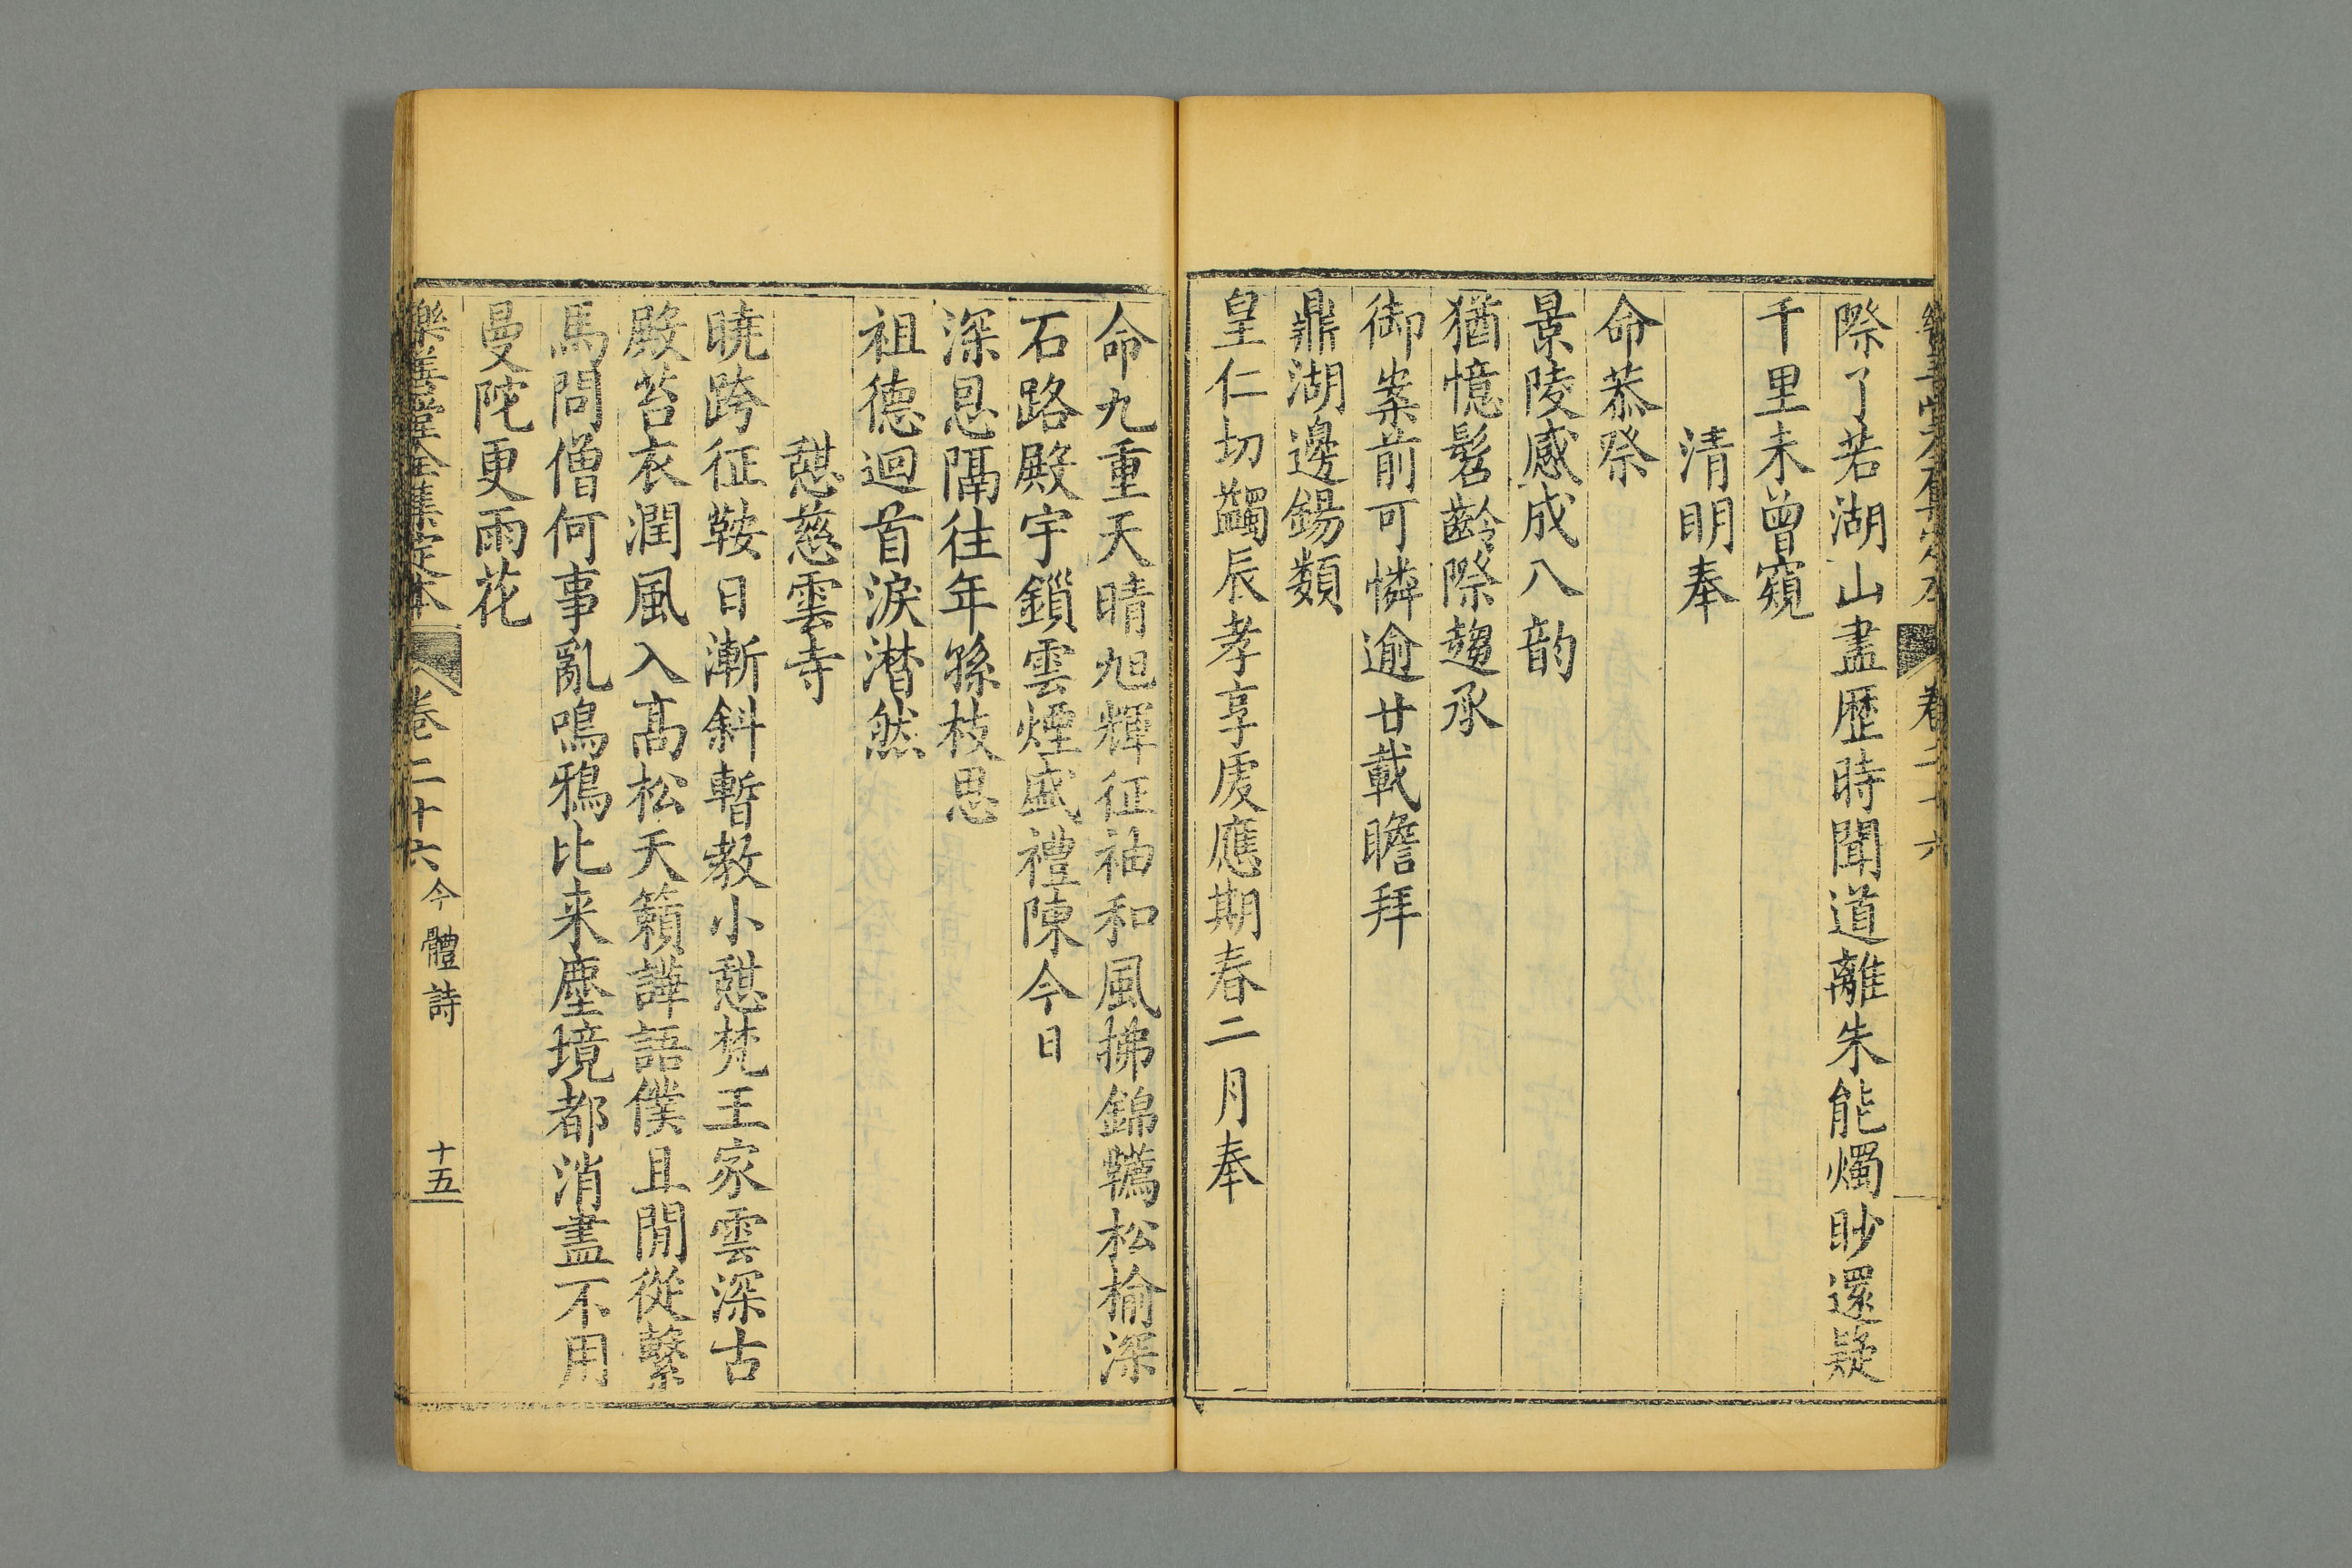 樂善堂全集定本 卷二十六
際了若湖山盡歷時聞道離朱能燭眇還疑
千里未曾窺
清明奉
命恭祭
景陵感成八韵
猶憶髫齡際趨承
御案前可憐逾廿載瞻拜
鼎湖邊錫類
皇仁切蠲辰孝享虔應期春二月奉
命九重天晴旭輝征袖和風拂錦韉松榆深
石路殿宇鎖雲煙盛禮陳今日
深恩隔往年孫枝思
祖德迴首淚潸然
憇慈雲寺
曉跨征鞍日漸斜暫教小憇梵王家雲深古
殿苔衣潤風入高松天籟譁語僕且閒從繫
馬問僧何事亂鳴鴉比来塵境都消盡不用
曼陀更雨花
樂善堂全集定本 卷二十六 今體詩 十五